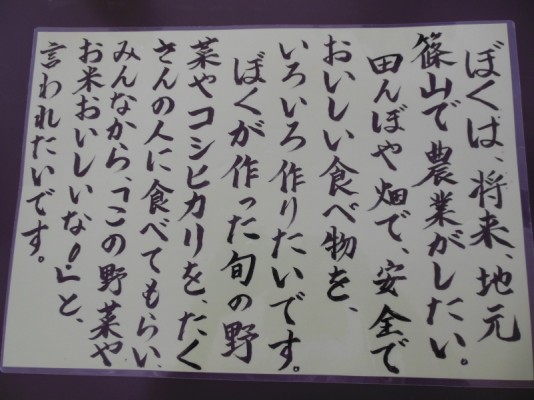 ぼくは、将来、地元
篠山で農業がしたい。
田んぼや畑で、安全で
おいしい食べ物を、
いろいろ作りたいです。
ぼくが作った旬の野
菜やコシヒカリを、たく
さんの人に食べてもらい、
みんなから、「この野菜や
お米おいしいな。」と、
言われたいです。